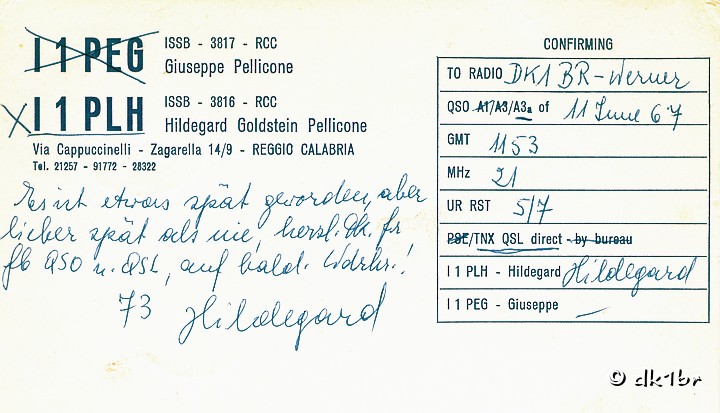 I 1 PEG ISSB - 3817 - RCC
Giuseppe Pellicone
X I 1 PLH ISSB - 3816 - RCC
Hildegard Goldstein Pellicone
Via Cappuccinelli - Zagarella 14/9 - REGGIO CALABRIA
Tel. 21257 - 91772 - 28322
Es ist etwas spät geworden, aber
lieber spät als nie, herzl. Dk. fr
fb QSO u. QSL, auf bald. Wdrhr.!
73 Hildegard
CONFIRMING
TO RADIO DK1BR-Werner
QSO A1/A3/A3a of 11 June 67
GMT 1153
MHz 21
UR RST 5/7
PSE/TNX QSL direct - by bureau
I 1 PLH - Hildegard Hildegard
I 1 PEG - Giuseppe —
© dk1br